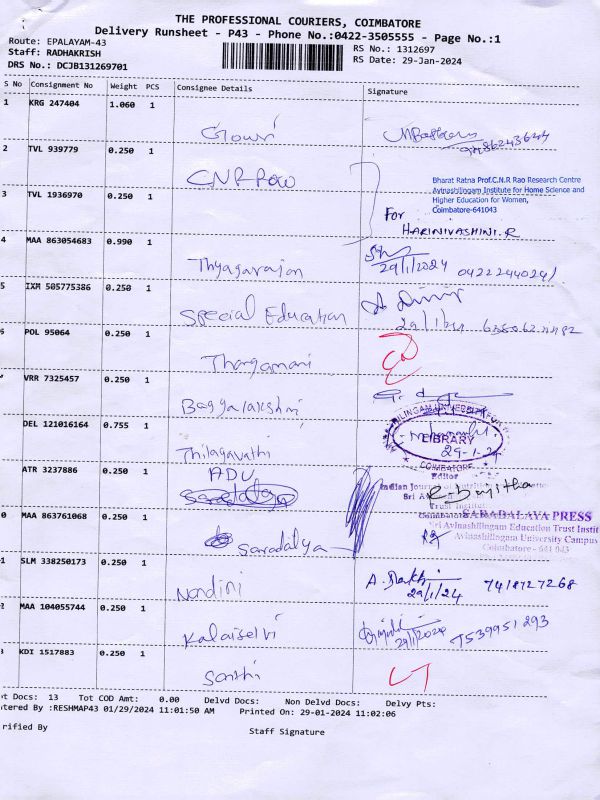 THE PROFESSIONAL COURIERS, COIMBATORE
Delivery Runsheet - P43 - Phone No.:0422-3505555 - Page No.:1
Route: EPALAYAM-43
Staff: RADHAKRISH
DRS No.: DCJB131269701
RS No.: 1312697
RS Date: 29-Jan-2024
S No Consignment No Weight PCS Consignee Details Signature
1 KRG 247404 1.060 1
Gowri
2 TVL 939779 0.250 1
CNR Rao
Bharat Ratna Prof.C.N.R Rao Research Centre
Avinashilingam Institute for Home Science and
Higher Education for Women,
Coimbatore-641043
3 TVL 1936970 0.250 1
For
HARINIVASHINI.R
4 MAA 863054683 0.990 1
Thyagarajan
29/1/2024 04222440241
5 IXM 505775386 0.250 1
Special Education
29/1/24
POL 95064 0.250 1
Thangamani
VRR 7325457 0.250 1
Baggalakshmi
DEL 121016164 0.755 1
Thilagavathi
LIBRARY
29-1-24
COIMBATORE
ATR 3237886 0.250 1
ADU
Editor
Indian Journal
Sri
Trust Institut
Coimbatore
0 MAA 863761068 0.250 1
Saradalya
SARADALAYA PRESS
Sri Avinashilingam Education Trust Insti
Avinashilingam University Campus
Coimbatore - 641 043
1 SLM 338250173 0.250 1
Nandini
29/1/24 7418727268
2 MAA 104055744 0.250 1
Kalaiselvi
29/1/2024 7539951293
3 KDI 1517883 0.250 1
Santhi
t Docs: 13 Tot COD Amt: 0.00 Delvd Docs: Non Delvd Docs: Delvy Pts:
tered By :RESHMAP43 01/29/2024 11:01:50 AM Printed On: 29-01-2024 11:02:06
rified By Staff Signature